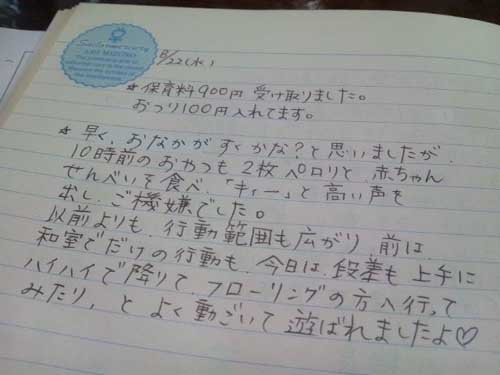 8/22(水)
*保育料900円 受け取りました。
おつり100円入れてます。
*早く、おなかがすくかな?と思いましたが
10時前のおやつも2枚ペロリと 赤ちゃん
せんべいを食べ、「キィー」と高い声を
出し、ご機嫌でした。
以前よりも、行動範囲も広がり、前は、
和室でだけの行動も、今日は、段差も上手に
ハイハイで降りて、フローリングの方へ行って
みたり、と よく動ごいて遊ばれましたよ♡